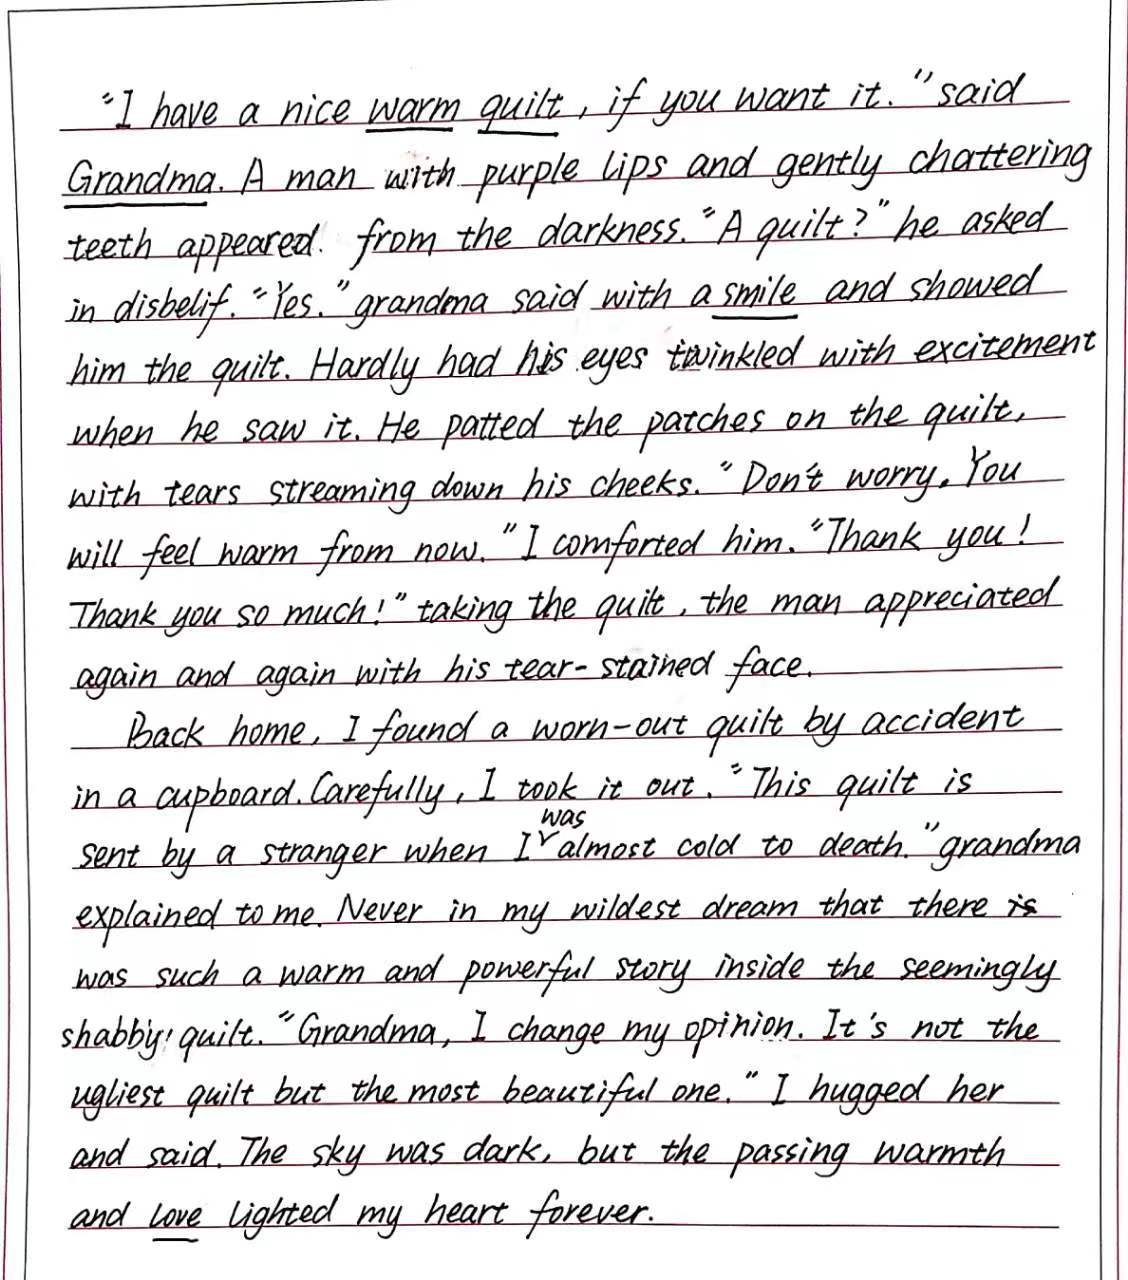 "I have a nice warm quilt, if you want it." said
Grandma. A man with purple lips and gently chattering
teeth appeared from the darkness. "A quilt?" he asked
in disbelif. "Yes." grandma said with a smile and showed
him the quilt. Hardly had his eyes twinkled with excitement
when he saw it. He patted the patches on the quilt,
with tears streaming down his cheeks. "Don't worry. You
will feel warm from now." I comforted him. "Thank you!
Thank you so much!" taking the quilt, the man appreciated
again and again with his tear-stained face.
Back home, I found a worn-out quilt by accident
in a cupboard. Carefully, I took it out. "This quilt is
sent by a stranger when I was almost cold to death." grandma
explained to me. Never in my wildest dream that there is
was such a warm and powerful story inside the seemingly
shabby quilt. "Grandma, I change my opinion. It's not the
ugliest quilt but the most beautiful one." I hugged her
and said. The sky was dark, but the passing warmth
and love lighted my heart forever.